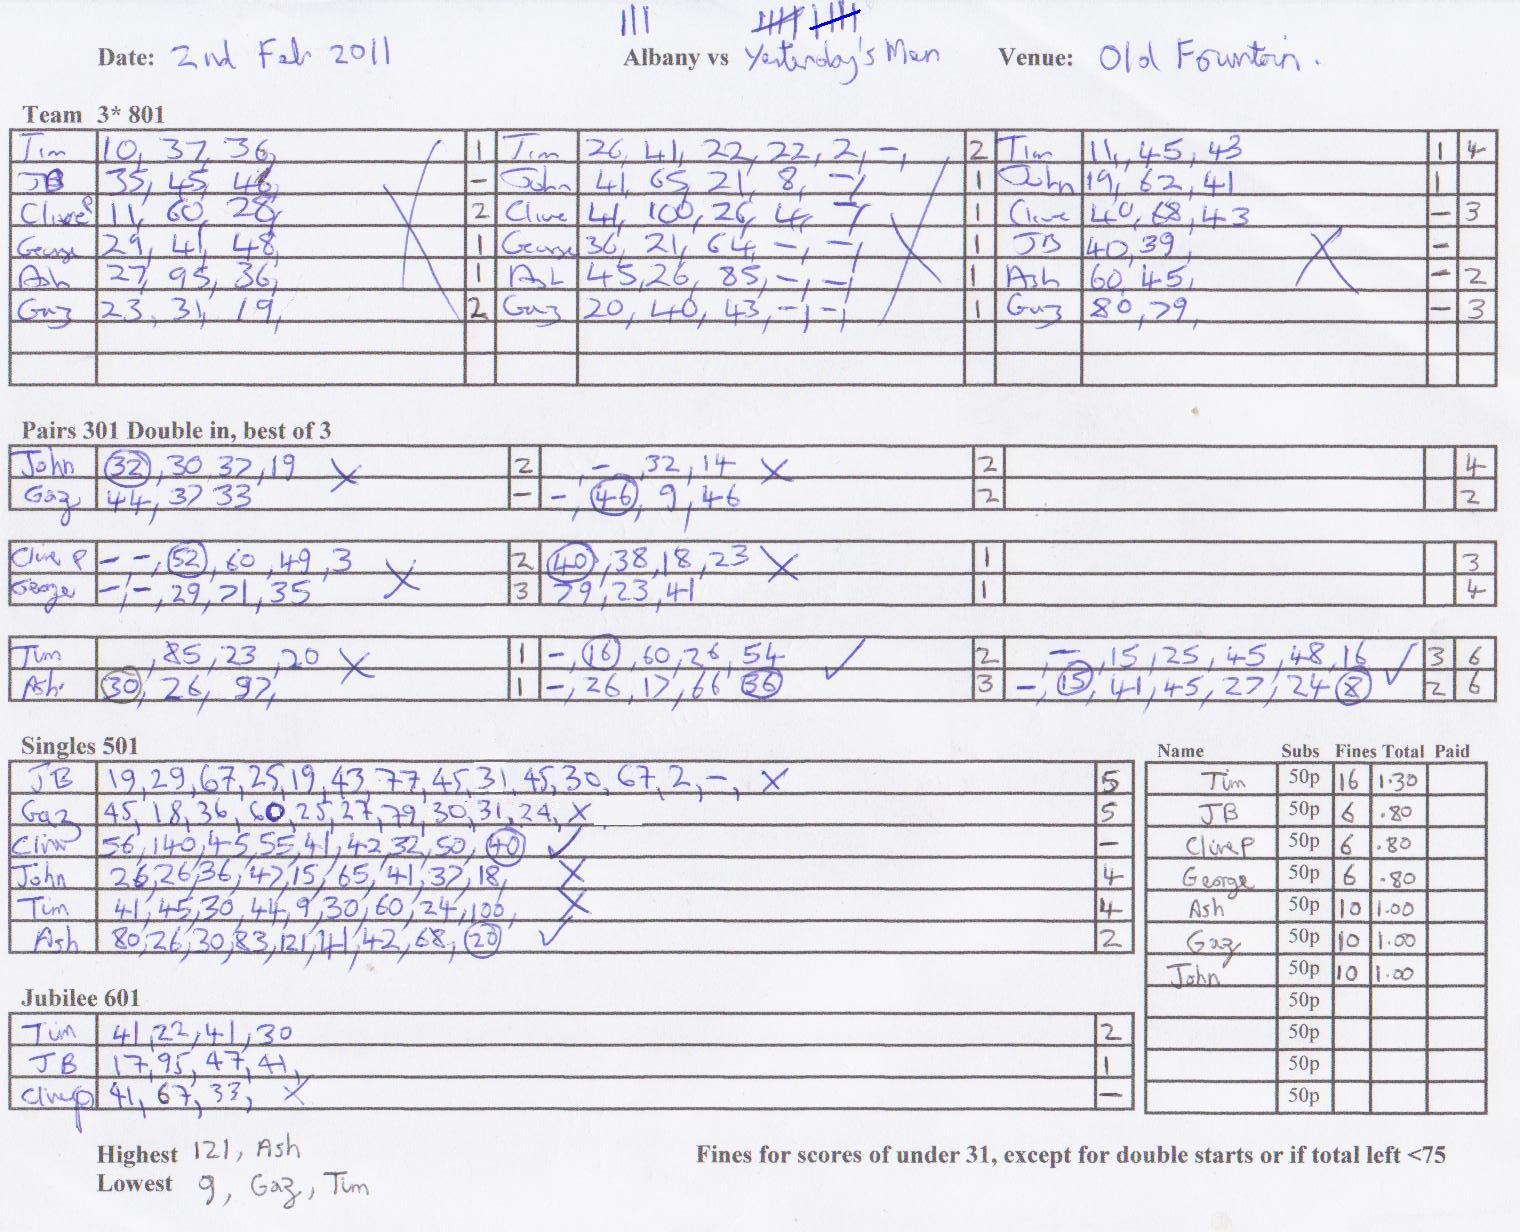 Date: 2nd Feb 2011 Albany vs Yesterday's Men Venue: Old Fountain.
Team 3* 801
Tim 10, 37, 36, 1 Tim 26, 41, 22, 22, 2, -, 2 Tim 11, 45, 43 1 4
JB 35, 45, 46, - John 41, 65, 21, 8, -, 1 John 19, 62, 41 1
Clive P 11, 60, 26, 2 Clive 41, 100, 26, 4, -, 1 Clive 40, 68, 43 - 3
George 29, 41, 48, 1 George 36, 21, 64, -, -, 1 JB 40, 39, -
Ash 27, 95, 36, 1 Ash 45, 26, 85, -, -, 1 Ash 60, 45, - 2
Gaz 23, 31, 19, 2 Gaz 20, 40, 43, -, -, 1 Gaz 80, 79, - 3
Pairs 301 Double in, best of 3
John 32, 30, 37, 19 X 2 -, 32, 14 X 2 4
Gaz 44, 37, 33 - -, 46, 9, 46 2 2
Clive P -, -, 52, 60, 49, 3 X 2 40, 38, 18, 23 X 1 3
George -, -, 29, 71, 35 3 79, 23, 41 1 4
Tim , 85, 23, 20 X 1 -, 16, 60, 26, 54 ✓ 2 -, 15, 25, 45, 48, 16 ✓ 3 6
Ash. 30, 26, 97, 1 -, 26, 17, 66, 36 3 -, 15, 41, 45, 27, 24, 8 2 6
Singles 501
JB 19, 29, 67, 25, 19, 43, 77, 45, 31, 45, 30, 67, 2, -, X 5
Gaz 45, 18, 36, 60, 25, 27, 79, 30, 31, 24, X 5
Clive 56, 140, 45, 55, 41, 42, 32, 50, 40 ✓ -
John 26, 26, 36, 47, 15, 65, 41, 37, 18, X 4
Tim 41, 45, 30, 44, 9, 30, 60, 24, 100, X 4
Ash 80, 26, 30, 83, 121, 41, 42, 68, 20 ✓ 2
Name Subs Fines Total Paid
Tim 50p 16 1.30
JB 50p 6 .80
Clive P 50p 6 .80
George 50p 6 .80
Ash 50p 10 1.00
Gaz 50p 10 1.00
John 50p 10 1.00
50p
50p
50p
50p
Jubilee 601
Tim 41, 22, 41, 30 2
JB 17, 95, 47, 41, 1
Clive P 41, 67, 33, X -
Highest 121, Ash
Lowest 9, Gaz, Tim
Fines for scores of under 31, except for double starts or if total left <75